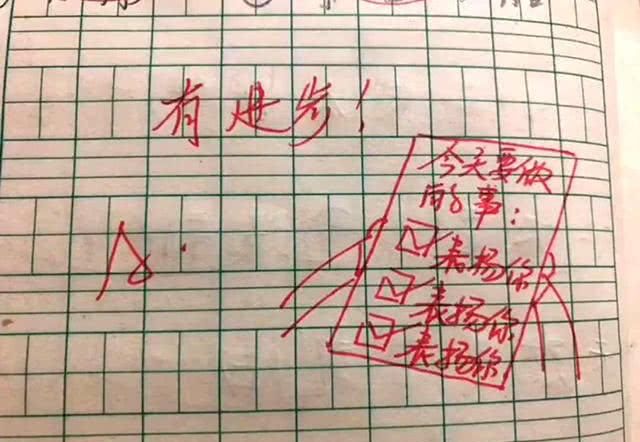 有进步！
今天要做
的事：
表扬你
表扬你
表扬你
A